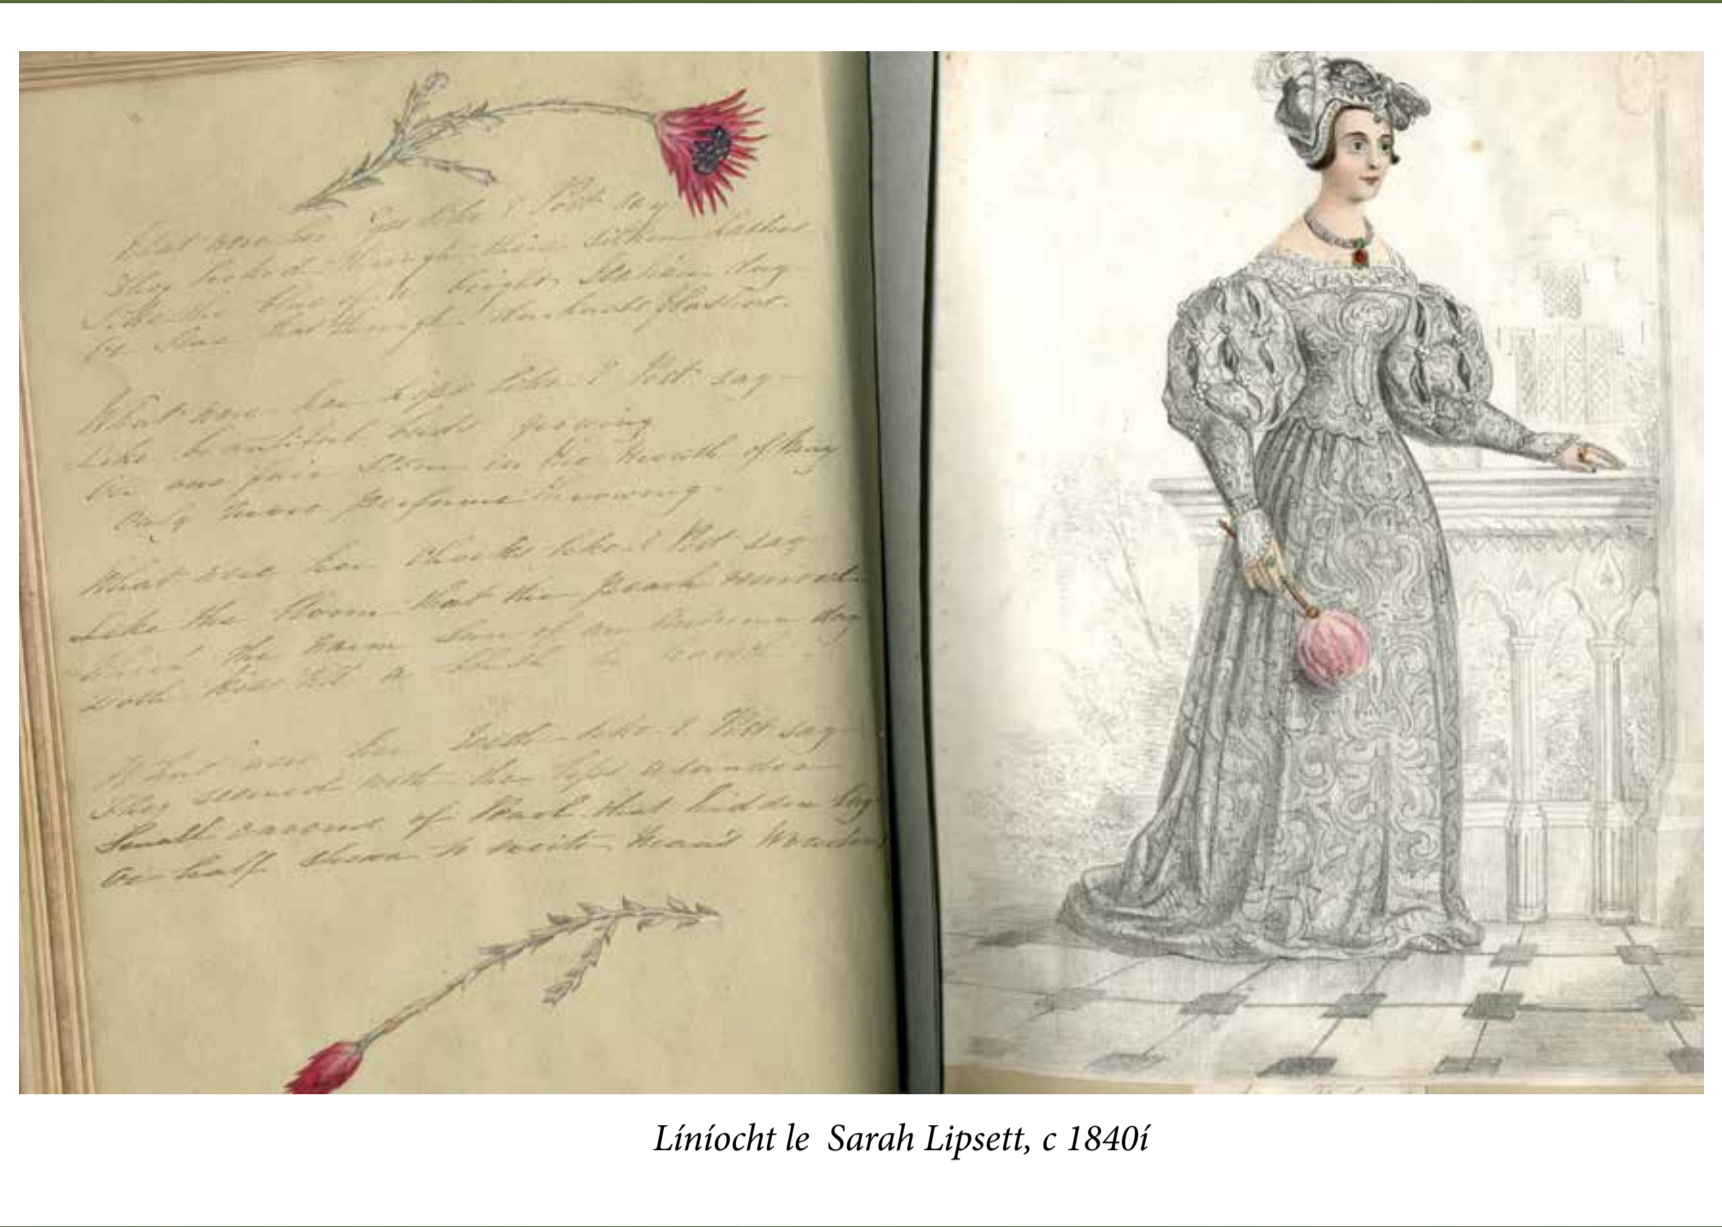 What were her Eyes like? Poet say
They looked through their silken lashes
Like the blue of a bright Italian day
That through flashes.
What were her Lips like? Poet say
Like beautiful buds growing
On one fair Stem in the Month of May
Only more perfume throwing.
What were her Cheeks like? Poet say
Like the bloom that the peach
the warm Sun of an Autumn day
a blush
What were her Teeth like? Poet say
They seemed with the lips
Small of Pearl that hidden lay
Or half shown to
Líníocht le Sarah Lipsett, c 1840í